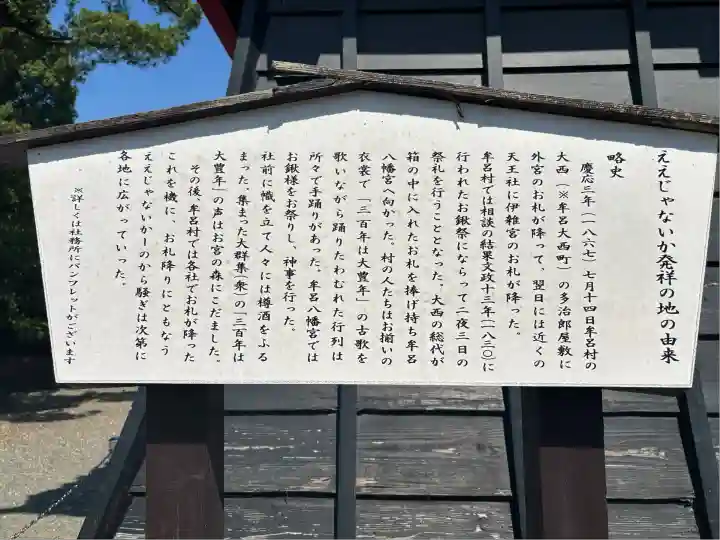 ええじゃないか発祥の地の由来
略史
慶応三年（一八六七）七月十四日牟呂村の
大西（※牟呂大西町）の多治郎屋敷に
外宮のお札が降って、翌日には近くの
天王社に伊雑宮のお札が降った。
牟呂村では相談の結果文政十三年（一八三〇）に
行われたお鍬祭にならって二夜三日の
祭礼を行うこととなった。大西の総代が
箱の中に入れたお札を捧げ持ち牟呂
八幡宮へ向かった。村の人たちはお揃いの
衣裳で「三百年は大豊年」の古歌を
歌いながら踊りたわむれた行列は
所々で手踊りがあった。牟呂八幡宮では
お鍬様をお祭りし、神事を行った。
社前に幟を立て人々には樽酒をふる
まった。集まった大群集（衆）の「三百年は
大豊年」の声はお宮の森にこだました。
その後、牟呂村では各社でお札が降った
これを機に、お札降りにともなう
ええじゃないかーのから騒ぎは次第に
各地に広がっていった。
※詳しくは社務所にパンフレットがございます